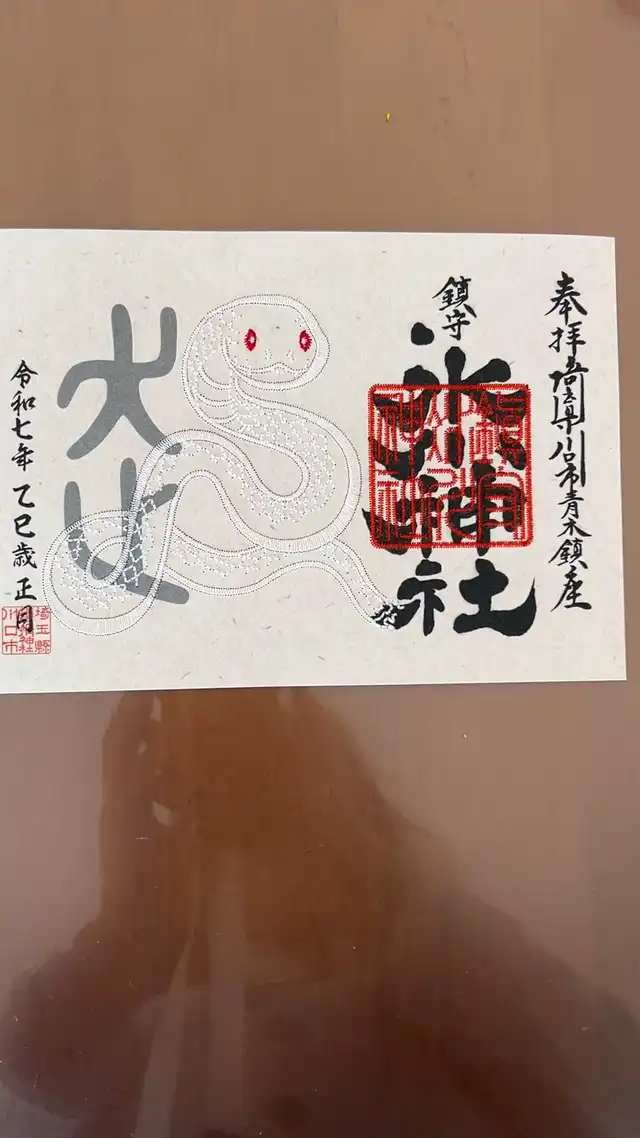 奉拝 埼玉県川口市青木鎮座
鎮守
氷川神社
鎮守
氷川
神社
令和七年 乙巳歳 正月
埼玉縣
神社
川口市